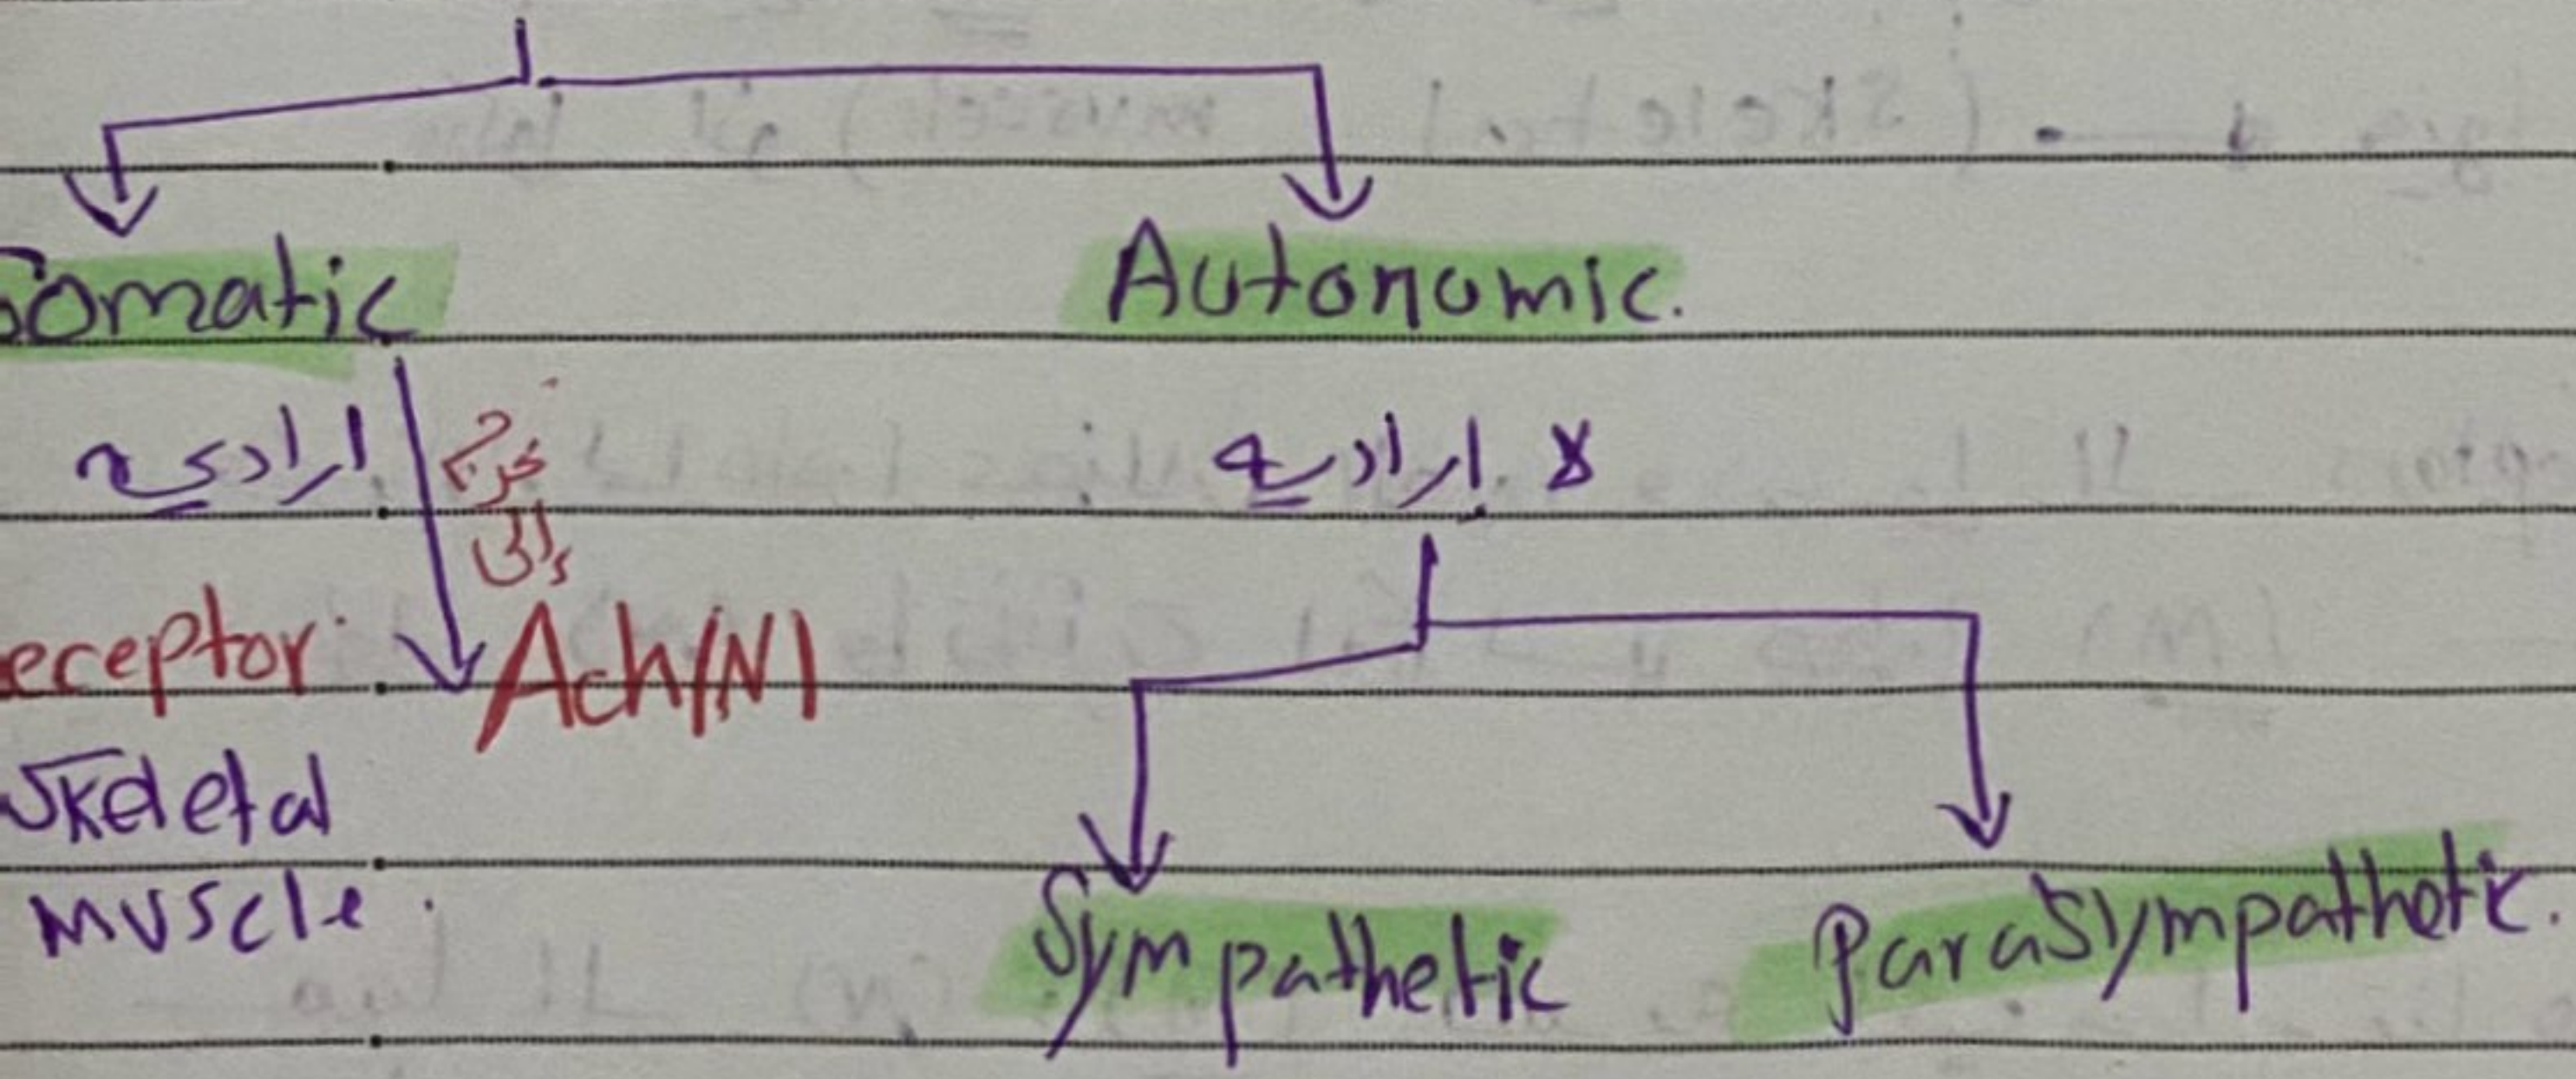 Somatic
Autonomic.
ارادية
تخرج
إلى
لا ارادية
eceptor
Ach(N)
Skeletal
muscle.
Sympathetic
Parasympathetic.